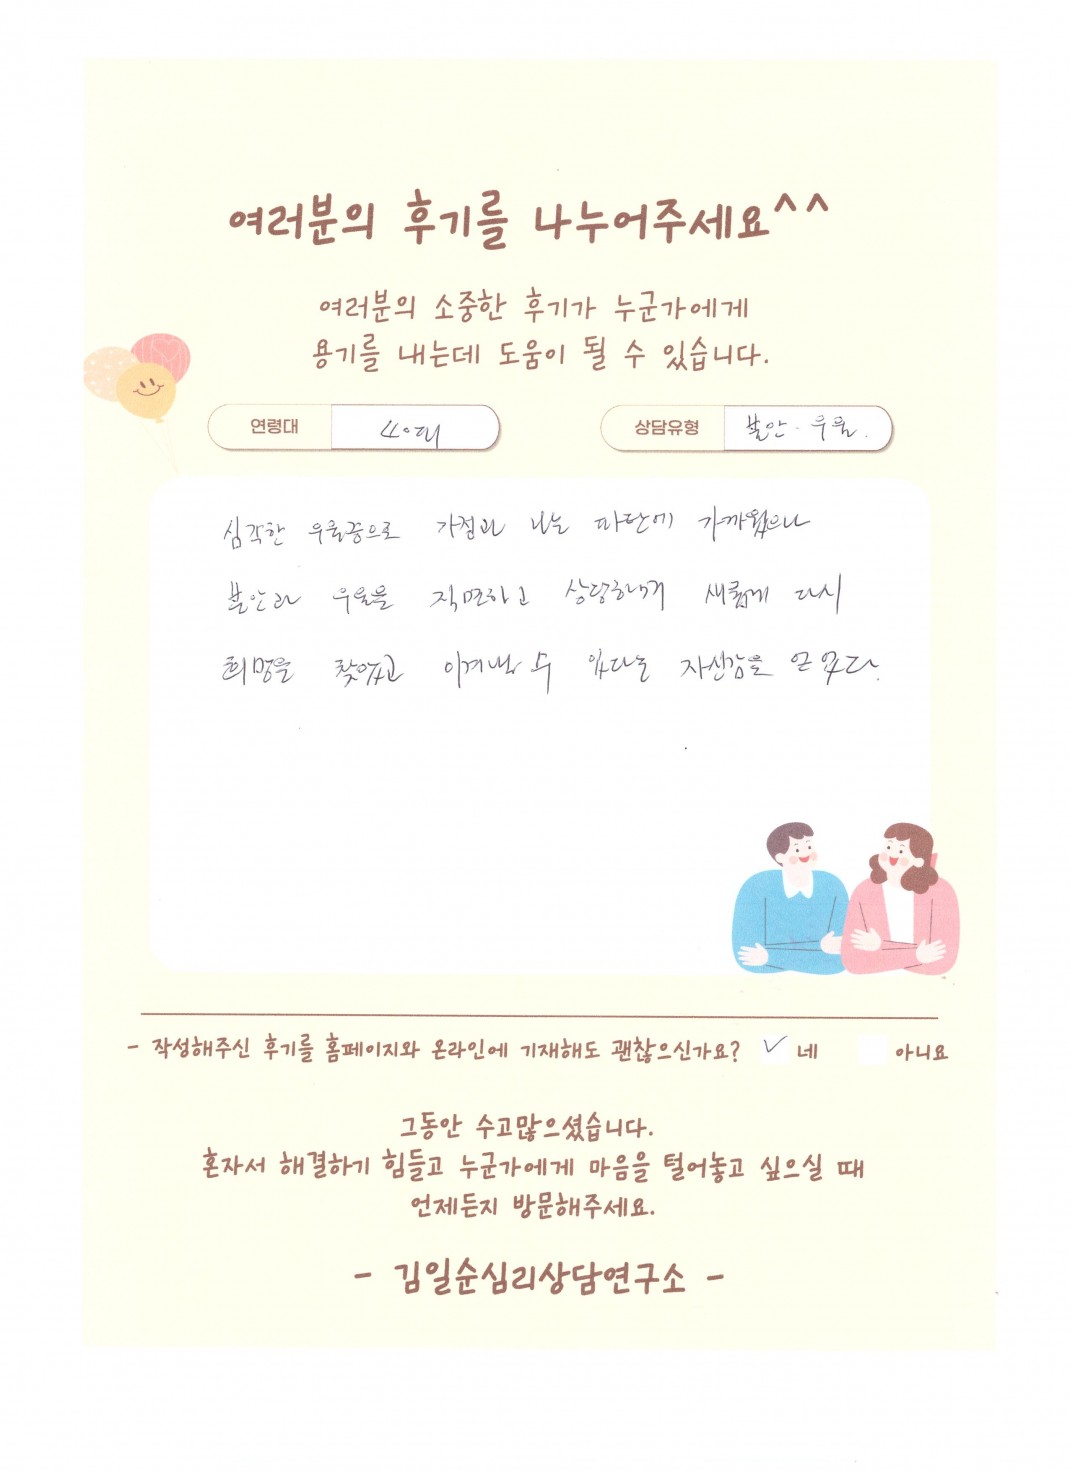 여러분의 후기를 나누어주세요^^
여러분의 소중한 후기가 누군가에게
용기를 내는데 도움이 될 수 있습니다.
연령대 40대 상담유형 불안·우울.
심각한 우울증으로 가정과 나는 파탄에 가까웠으나
불안과 우울을 직면하고 상담하며 새롭게 다시
희망을 찾았고 이겨낼 수 있다는 자신감을 얻었다.
- 작성해주신 후기를 홈페이지와 온라인에 기재해도 괜찮으신가요? ✓ 네 아니요
그동안 수고많으셨습니다.
혼자서 해결하기 힘들고 누군가에게 마음을 털어놓고 싶으실 때
언제든지 방문해주세요.
- 김일순심리상담연구소 -